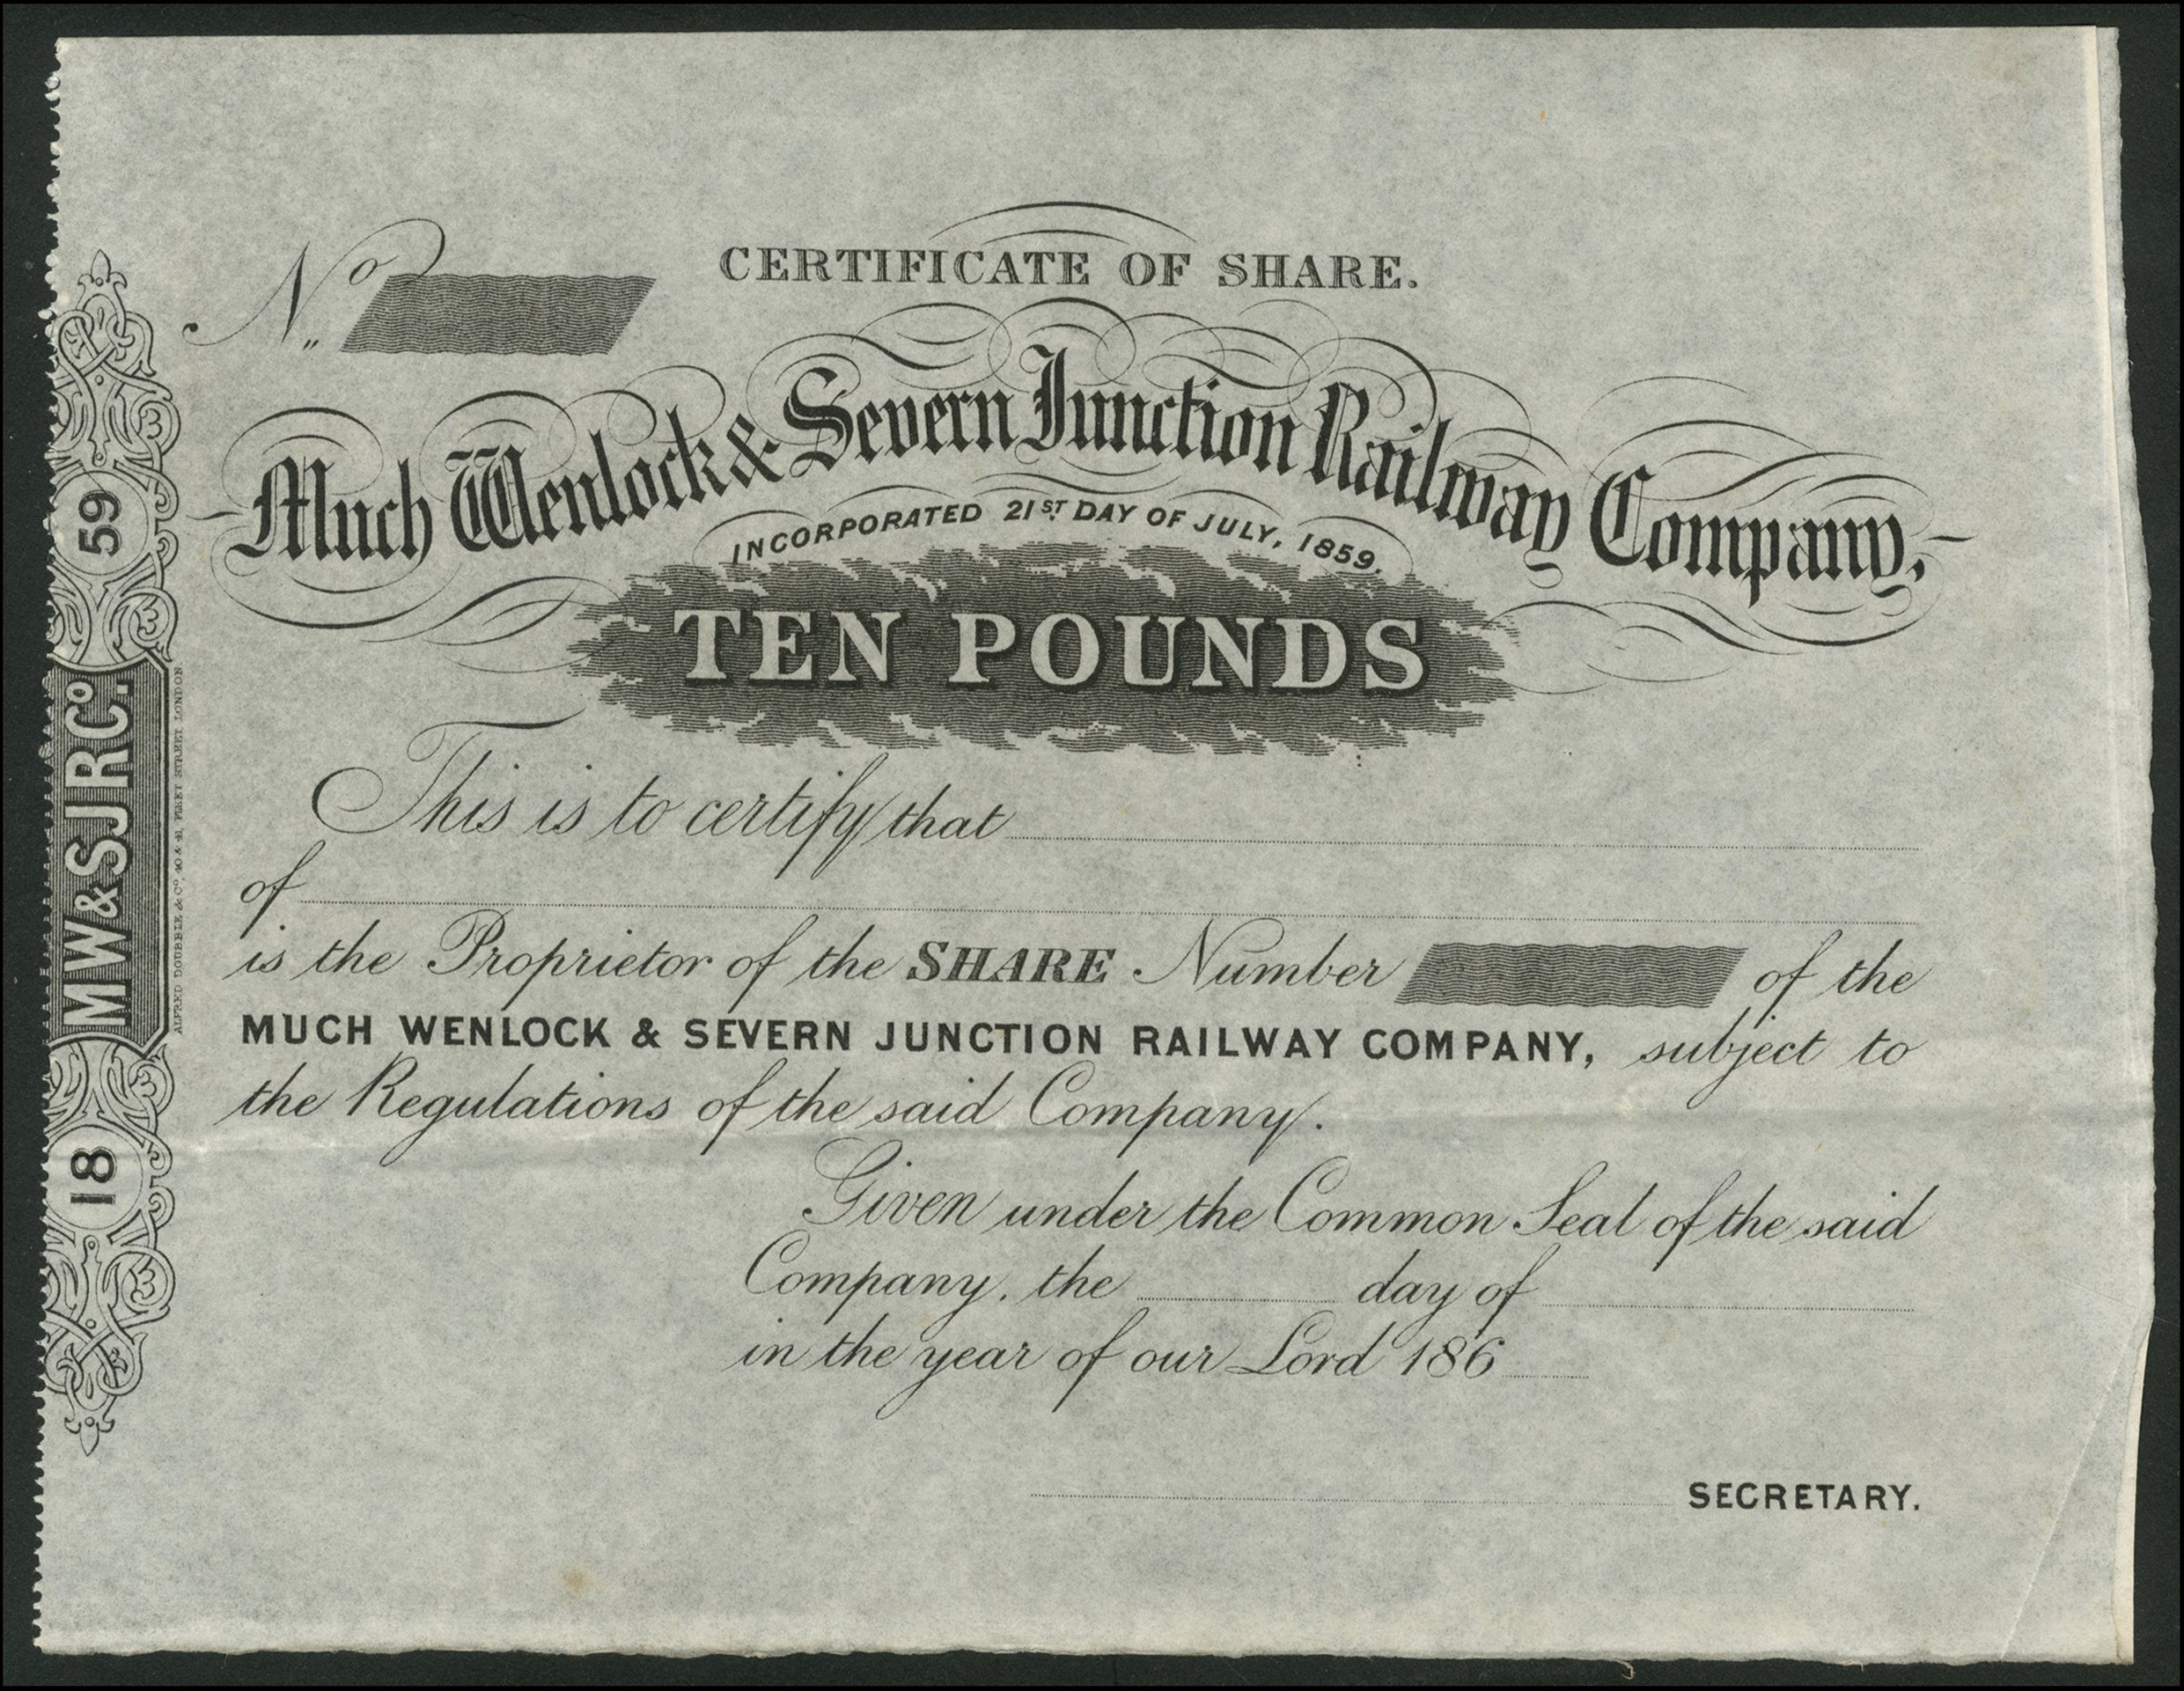 CERTIFICATE OF SHARE.
No.
Much Wenlock & Severn Junction Railway Company,
INCORPORATED 21ST DAY OF JULY, 1859.
TEN POUNDS
This is to certify that
of
is the Proprietor of the SHARE Number of the
MUCH WENLOCK & SEVERN JUNCTION RAILWAY COMPANY, subject to
the Regulations of the said Company.
Given under the Common Seal of the said
Company, the day of
in the year of our Lord 186
SECRETARY.
18 MW&SJRCo. 59
ALFRED DOUBBLE & Co, 40 & 41, FLEET STREET LONDON